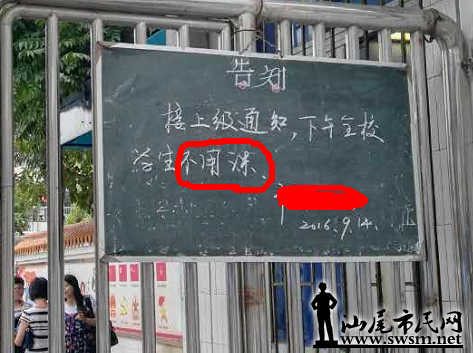 告知
接上级通知,下午全校
学生不用课、
2016.9.14.
汕尾市民网
www.swsm.net